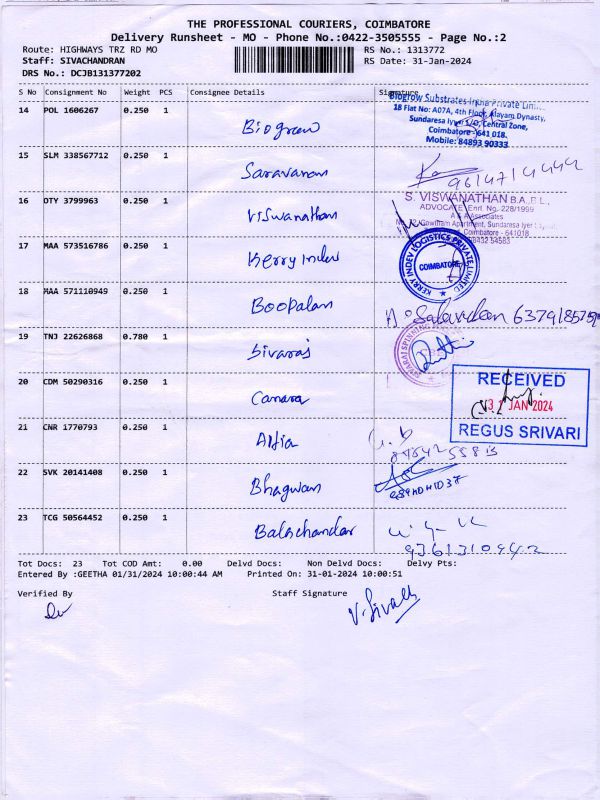 THE PROFESSIONAL COURIERS, COIMBATORE
Delivery Runsheet - MO - Phone No.:0422-3505555 - Page No.:2
Route: HIGHWAYS TRZ RD MO RS No.: 1313772
Staff: SIVACHANDRAN RS Date: 31-Jan-2024
DRS No.: DCJB131377202
S No Consignment No Weight PCS Consignee Details Signature
14 POL 1606267 0.250 1 Biogreen
Biogrow Substrates India Private Limi
18 Flat No: A07A, 4th Floor, Alayam Dynasty,
Sundaresa Iyer Central Zone,
Coimbatore - 641 018.
Mobile: 84893 90333
15 SLM 338567712 0.250 1 Saravanan
16 OTY 3799963 0.250 1 Viswanathan
S. VISWANATHAN B.A.,B.L.,
ADVOCATE, Enrl. No. 228/1999
A & A Associates
Gowtham Apartment, Sundaresa Iyer
Coimbatore - 641018
17 MAA 573516786 0.250 1 Kerry Indev
KERRY INDEV LOGISTICS PRIVATE LIMITED
COIMBATORE
18 MAA 571110949 0.250 1 Boopalan
19 TNJ 22626868 0.780 1 Sivaraj
SPINNING
20 CDM 50290316 0.250 1 Canara
RECEIVED
JAN 2024
REGUS SRIVARI
21 CNR 1770793 0.250 1
22 SVK 20141408 0.250 1 Bhagwan
23 TCG 50564452 0.250 1 Balachandar
Tot Docs: 23 Tot COD Amt: 0.00 Delvd Docs: Non Delvd Docs: Delvy Pts:
Entered By :GEETHA 01/31/2024 10:00:44 AM Printed On: 31-01-2024 10:00:51
Verified By Staff Signature